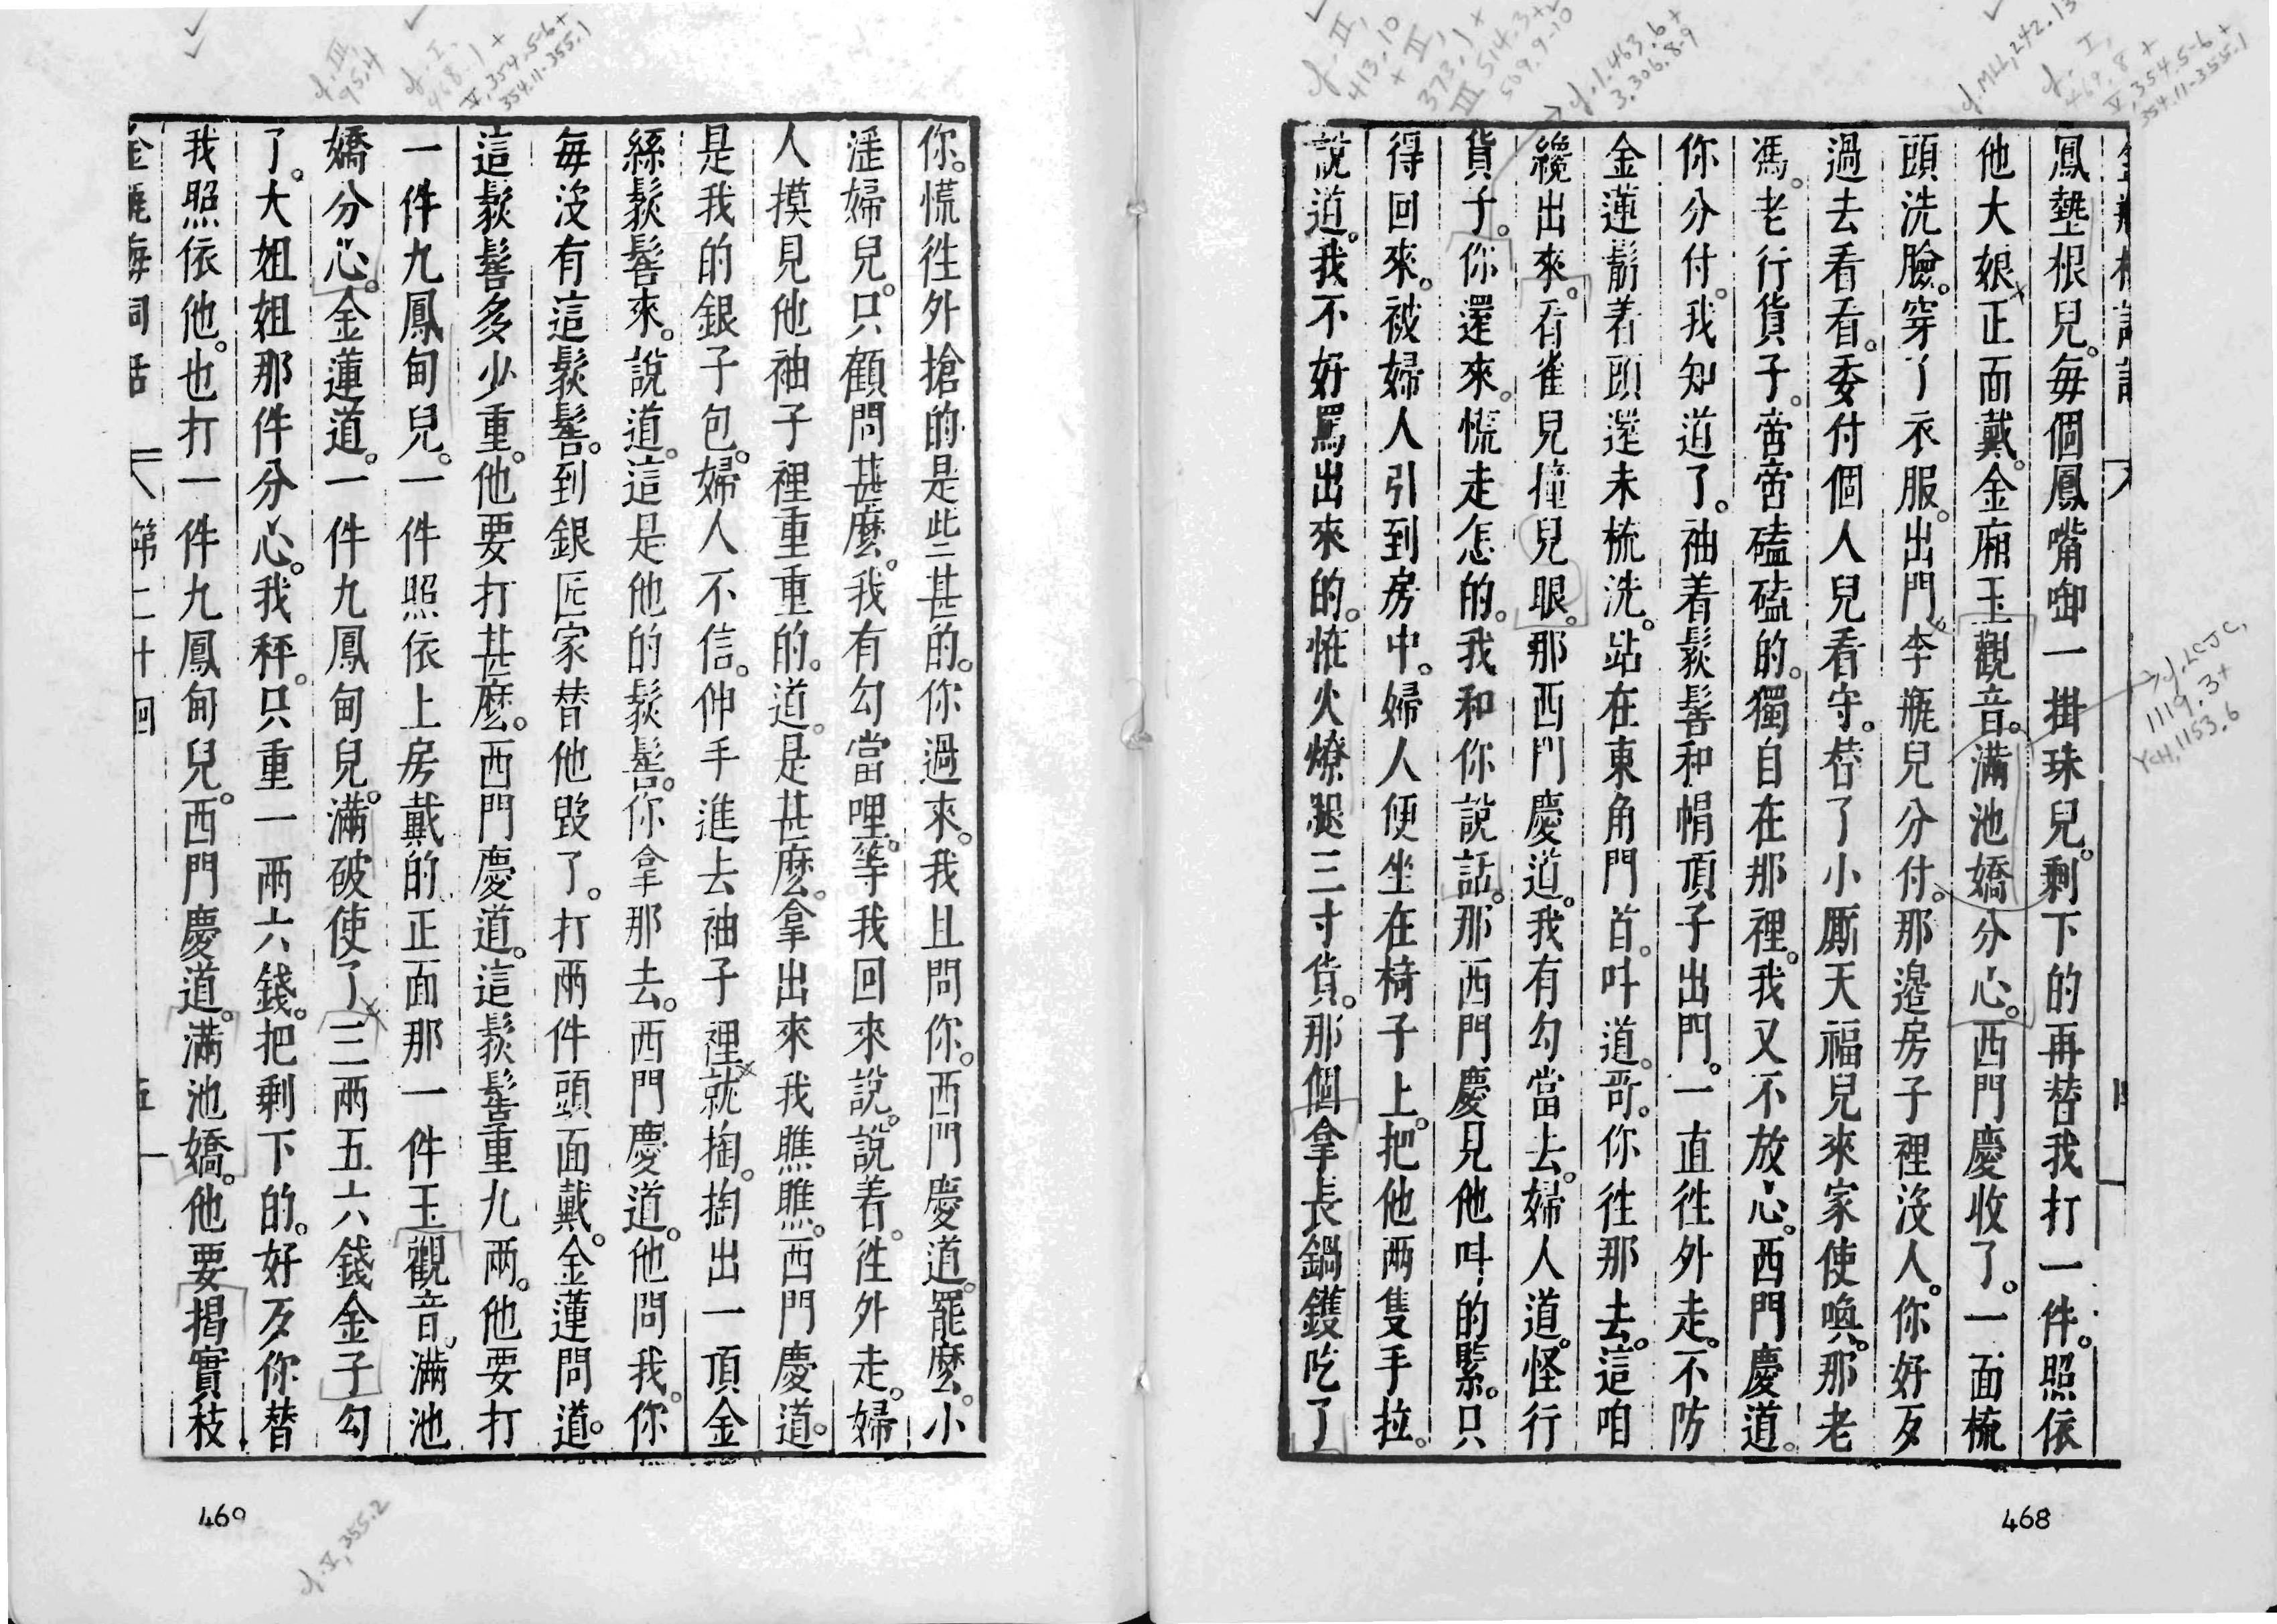 鳳墊根兒。每個鳳嘴啣一掛珠兒。剩下的再替我打一件。照依
他大娘正面戴。金廂玉觀音。滿池嬌分心。西門慶收了。一面梳
頭洗臉。穿了衣服。出門。李瓶兒分付。那邊房子裡沒人。你好歹
過去看看。委付個人兒看守。替了小厮天福兒來家使喚。那老
馮。老行貨子。啻啻磕磕的。獨自在那裡。我又不放心。西門慶道。
你分付。我知道了。袖着鬏髻和帽頂子出門。一直徃外走。不防
金蓮鬅着頭還未梳洗。站在東角門首。叫道。哥。你徃那去。這咱
纔出來。看雀兒撞兒眼。那西門慶道。我有勾當去。婦人道。怪行
貨子。你還來。慌走怎的。我和你說話。那西門慶見他叫的緊。只
得回來。被婦人引到房中。婦人便坐在椅子上。把他兩隻手拉。
說道。我不好罵出來的。怪火燎腿三寸貨。那個拿長鍋鑊吃了
468
你。慌徃外搶的是些甚的。你過來。我且問你。西門慶道。罷麼。小
淫婦兒。只顧問甚麼。我有勾當哩。等我回來說。說着。徃外走。婦
人摸見他袖子裡重重的。道。是甚麼。拿出來我瞧瞧。西門慶道。
是我的銀子包。婦人不信。伸手進去袖子裡就掏。掏出一頂金
絲鬏髻來。說道。這是他的鬏髻。你拿那去。西門慶道。他問我。你
每沒有這鬏髻。到銀匠家替他毀了。打兩件頭面戴。金蓮問道。
這鬏髻多少重。他要打甚麼。西門慶道。這鬏髻重九兩。他要打
一件九鳳甸兒。一件照依上房戴的正面那一件玉觀音。滿池
嬌分心。金蓮道。一件九鳳甸兒。滿破使了三兩五六錢金子勾
了。大姐姐那件分心。我秤。只重一兩六錢。把剩下的。好歹你替
我照依他。也打一件九鳳甸兒。西門慶道。滿池嬌。他要揭實枝
金瓶梅詞話 第二十回
469
cf. III, 95.4
cf. I, 468.1 +
V, 354.5-6 +
354.11-355.1
cf. II, 413.10
+ II, 373.1 +
III 514.3 +
509.9-10
cf. 1.463.6 +
3.306.8-9
cf. MLL, 242.13
cf. I, 469.8 +
V, 354.5-6 +
354.11-355.1
cf. LCJC,
1119.3 +
YCH, 1153.6
cf. V, 355.2